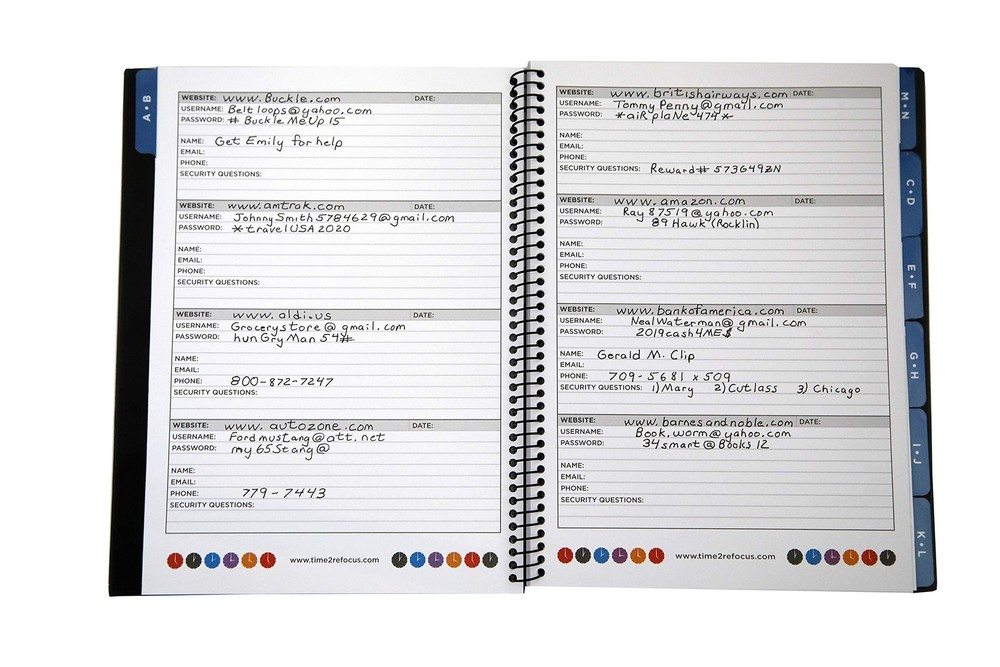 A • B
WEBSITE: www.Buckle.com DATE:
USERNAME: Belt loops@yahoo.com
PASSWORD: # Buckle MeUp 15
NAME: Get Emily for help
EMAIL:
PHONE:
SECURITY QUESTIONS:
WEBSITE: www.amtrak.com DATE:
USERNAME: JohnnySmith5784629@gmail.com
PASSWORD: *travelUSA2020
NAME:
EMAIL:
PHONE:
SECURITY QUESTIONS:
WEBSITE: www.aldi.us DATE:
USERNAME: Grocerystore@gmail.com
PASSWORD: hunGryMan 54#
NAME:
EMAIL:
PHONE: 800-872-7247
SECURITY QUESTIONS:
WEBSITE: www.autozone.com DATE:
USERNAME: Fordmustang@att.net
PASSWORD: my65Stang@
NAME:
EMAIL:
PHONE: 779-7443
SECURITY QUESTIONS:
www.time2refocus.com
WEBSITE: www.britishairways.com DATE:
USERNAME: TommyPenny@gmail.com
PASSWORD: *aiRplaNe 474*
NAME:
EMAIL:
PHONE:
SECURITY QUESTIONS: Reward# 573649ZN
WEBSITE: www.amazon.com DATE:
USERNAME: Ray87519@yahoo.com
PASSWORD: 89 Hawk (Rocklin)
NAME:
EMAIL:
PHONE:
SECURITY QUESTIONS:
WEBSITE: www.bankofamerica.com DATE:
USERNAME: NealWaterman@gmail.com
PASSWORD: 2019cash4ME$
NAME: Gerald M. Clip
EMAIL:
PHONE: 709-5681 x509
SECURITY QUESTIONS: 1) Mary 2) Cutlass 3) Chicago
WEBSITE: www.barnesandnoble.com DATE:
USERNAME: Book.worm@yahoo.com
PASSWORD: 34smart@Books12
NAME:
EMAIL:
PHONE:
SECURITY QUESTIONS:
www.time2refocus.com
M • N
C • D
E • F
G • H
I • J
K • L